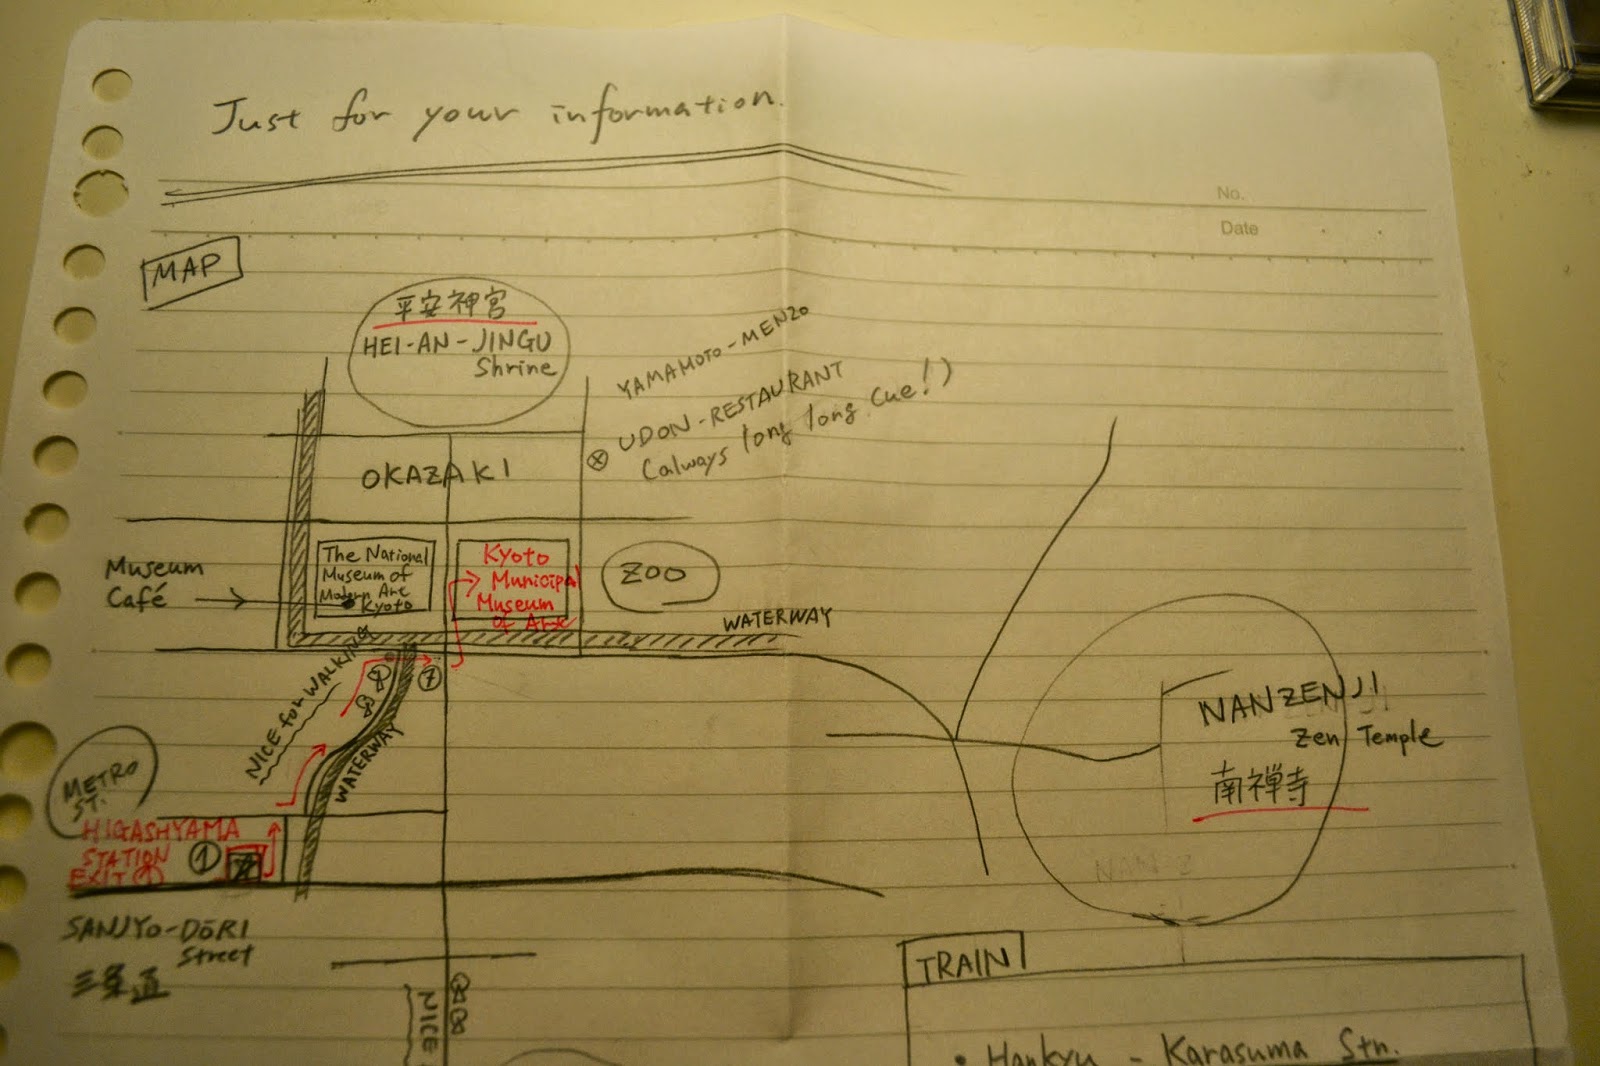 Just for your information.
No.
Date
MAP
平安神宮
HEI-AN-JINGU
Shrine
YAMAMOTO-MENZO
UDON-RESTAURANT
(always long long cue!)
OKAZAKI
Museum
Café
The National
Museum of
Modern Art
Kyoto
Kyoto
Municipal
Museum
of Art
ZOO
WATERWAY
NICE for WALKING
WATERWAY
NANZENJI
Zen Temple
南禅寺
NAN-Z
METRO
ST.
HIGASHYAMA
STATION
EXIT ①
①
SANJYO-DŌRI
Street
三条通
NICE
TRAIN
• Hankyu - Karasuma Stn.